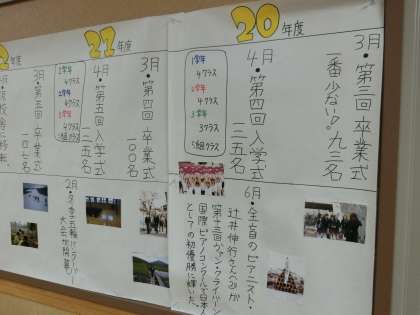 20年度
3月・第三回卒業式
一番少ない!九三名
4月・第四回入学式
一三五名
1学年
4クラス
2学年
4クラス
3学年
3クラス
6月・全盲のピアニスト・
辻井伸行さん
第十三回ヴァン・クライバーン
国際ピアノコンクールで日本人
としての初優勝に輝いた。
年度
3月・第四回卒業式
一〇〇名
4月・第五回入学式
一三五名
1学年
4クラス
2学年
4クラス
3学年
4クラス
2月・冬季五輪バンクーバー
大会が開幕
年度
3月・第五回卒業式
一〇七名